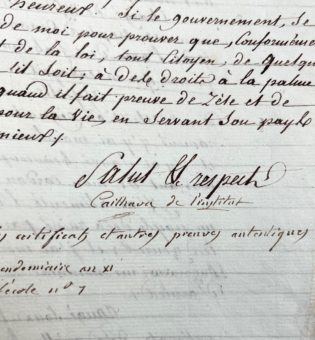 heureux! Si le gouvernement, se
de moi pour prouver que, conformémen
t de la loi, tout Citoyen, de quelqu
il soit, à de droits à la palme
quand il fait preuve de Zéle et de
pour la Vie, en servant Son pays
mieux,
Salut & respect
Cailhava de l'institut
es certificats et autres preuves autentiques
endemiaire an XI
l'école n° 7